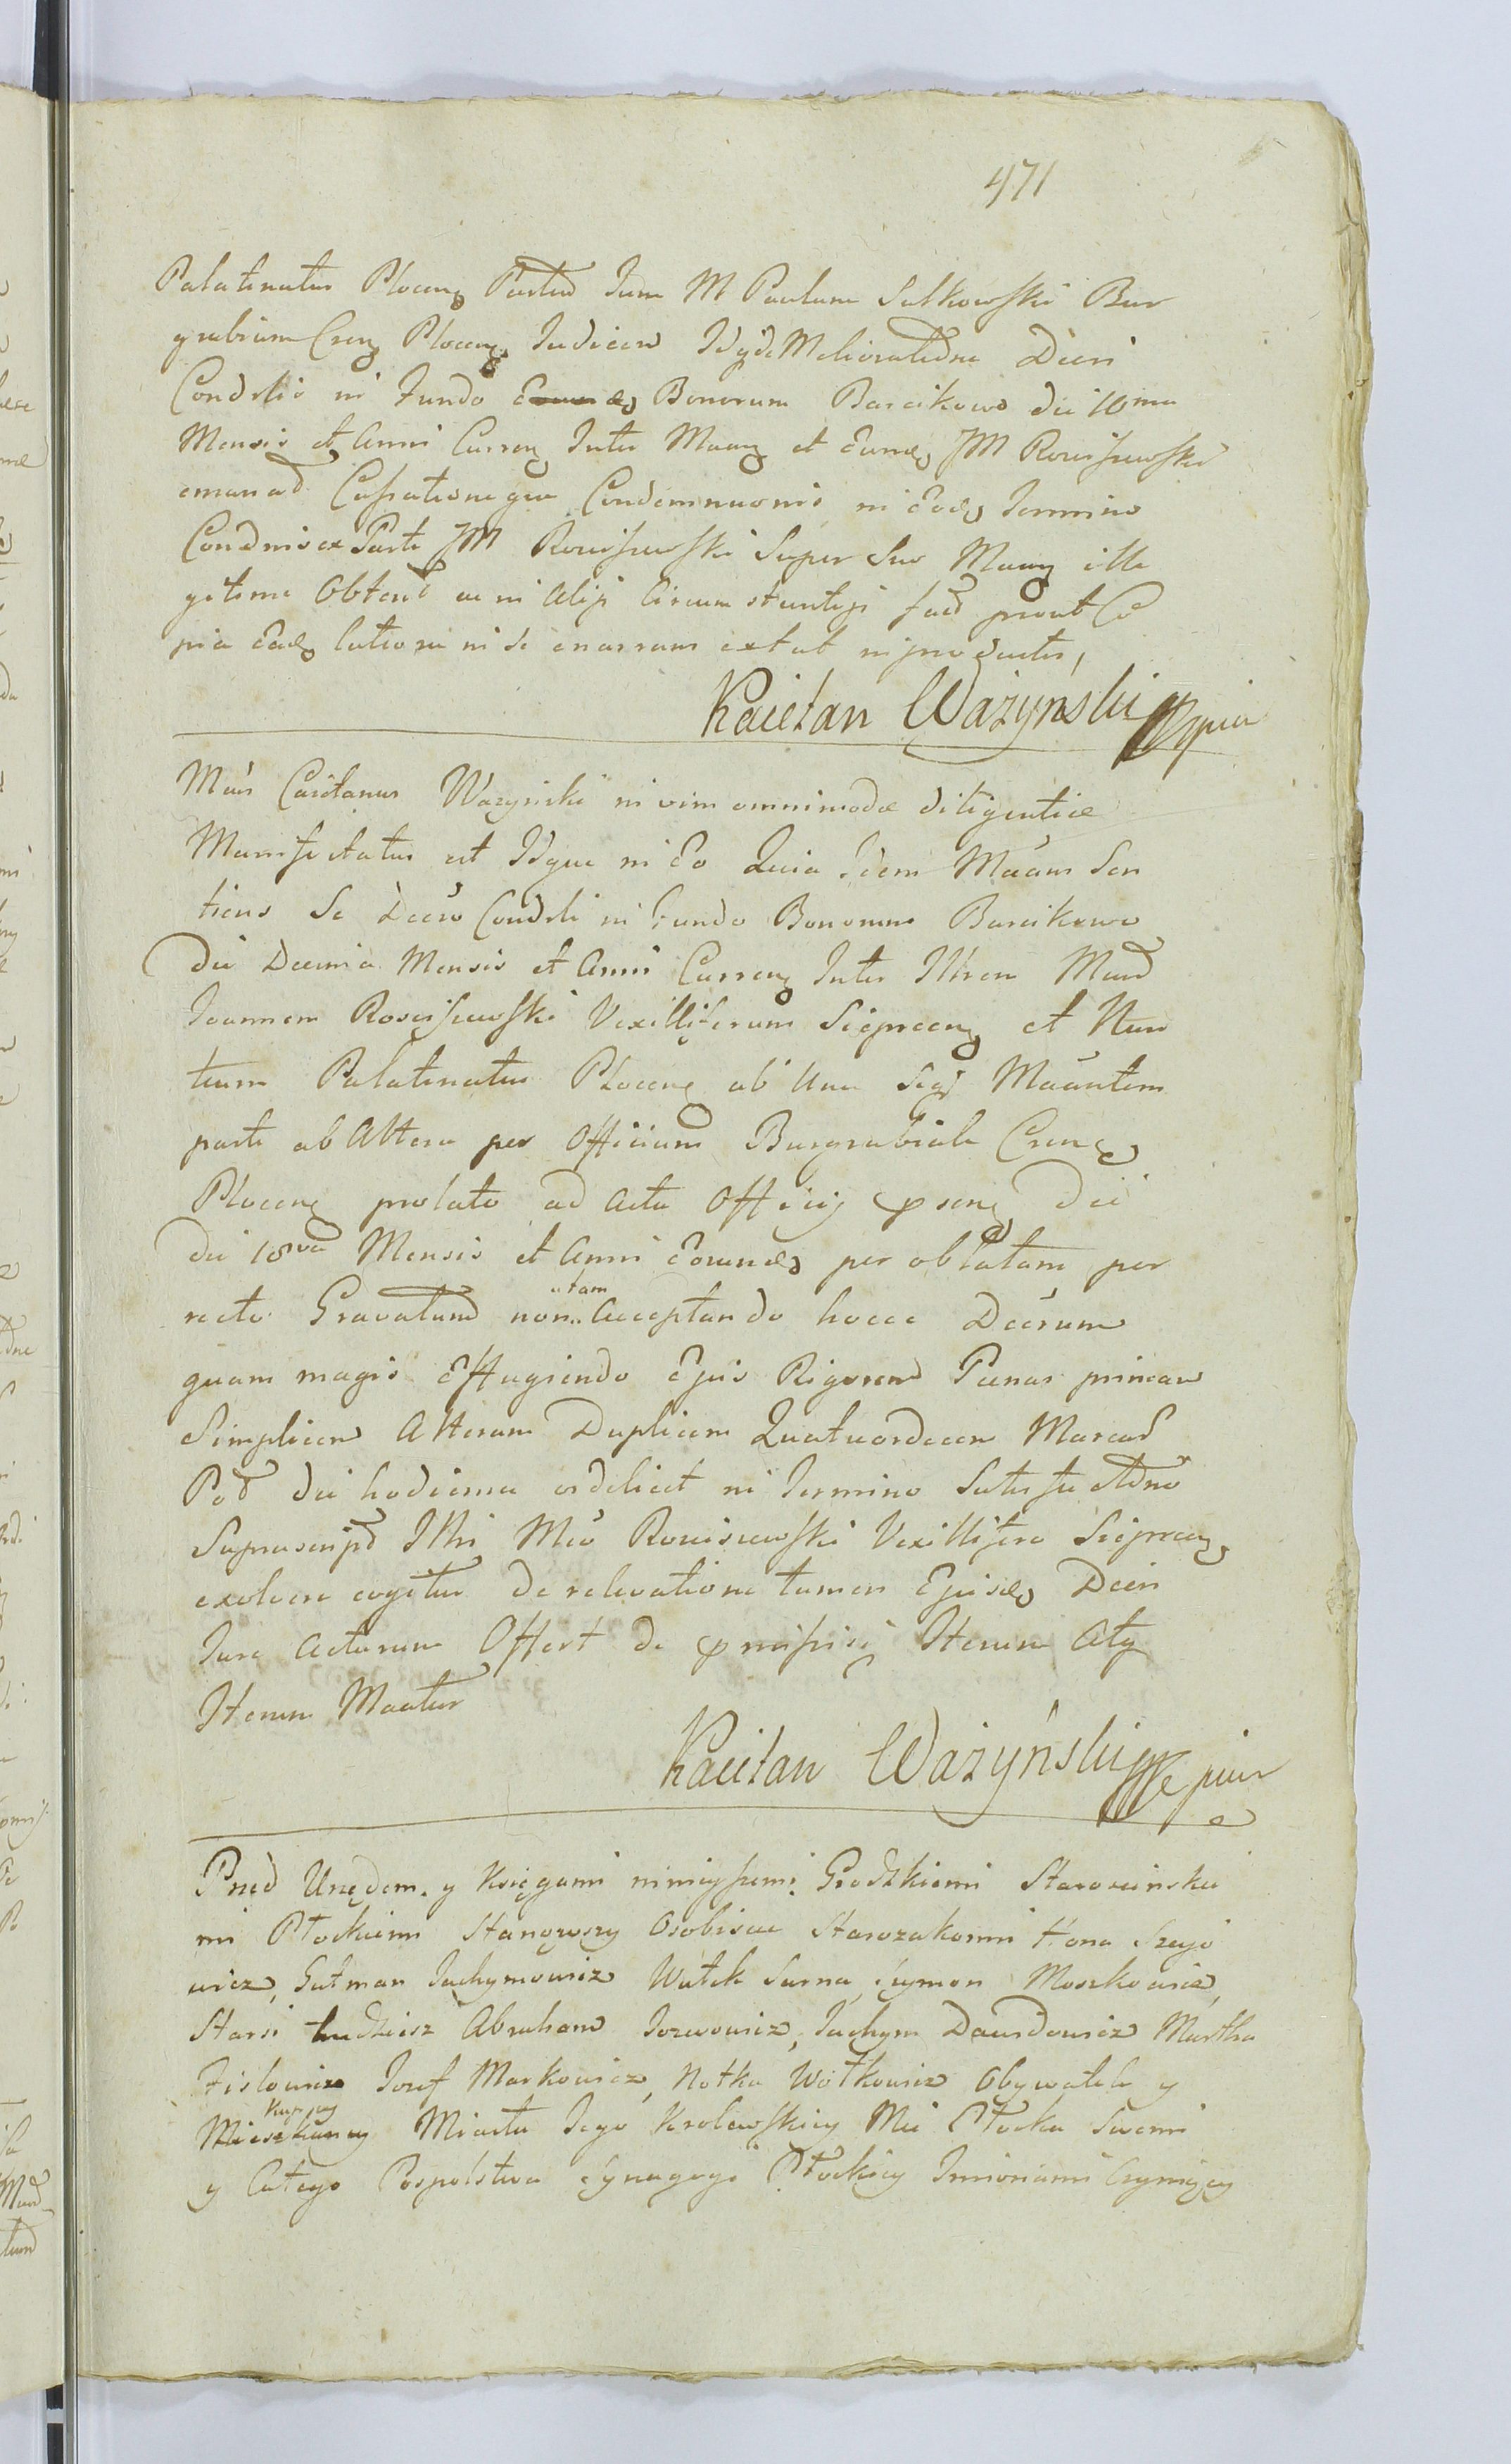 471
Palatinatus Plocen Partus Tum M Paulum Sutkowski Bur
grabium Cren Plocen Judicem Meliorationis Decri
Condelis in Fundo Bonorum Barcikowo die 10ma
Mensis et Anni Curren Inter Maan et Eund JM Rosciszewski
emanad Cassationeque Condemnaonis in Eod Termino
Condnis ex Parte JM Rosciszewski Super Suo Maan ille
gitime Obtent ac in Alijs Circumstantijs fact prout Co
pia Ead latiore in se enarram extat in productis,
Kaietan Ważyński
Mcus Caietanus Wazynski in vim omnimodæ diligentiæ
Manifestatus est Idque in Eo Quia Idem Maans Sen
tiens Se Decro Condeli in Fundo Bonorum Barcikowo
die Decima Mensis et Anni Curren Inter Illrem Mcum
Joannem Rosciszewski Vexilliferum Sieprcen et Nun
tium Palatinatus Plocen ab Una Seq Maantem
parte ab Altera per Officium Burgrabiale Cren
Plocen prolato ad Acta Officij pnsens die
die 18va Mensis et Anni Eorund per oblatam por
recto Gravatum non Acceptando hocce Decrum
utam
quam magis Effugiendo Ejus Rigorem Pænas primam
Simplicem Alteram Duplicem Quatuordecem Marcas
Pol die hodierna videlicet in Termino Satisfactionis
Suprascript Illri Mco Rosciszewski Vexillifero Sieprcen
exolvere cogitur de relevatione tamen Ejusd Decri
Jure Acturum Offert de pmissis Iterum Atq
Iterum Maatur
Kaietan Ważyński
Przed Urzędem y Księgami ninieyszemi Grodzkiemi Staroscinskie
mi Płockiemi Stanąwszy Osobiscie Starozakonni Hona Szejo
wicz, Gutman Jachymowicz Wulek Sarna, Szymon Moszkowicz,
Starsi tudziesz Abraham Jozwowicz, Jachym Dawidowicz
Fislowicz Jozef Markowicz, Notka Wołkowicz Obywatele y
Kupcy
Mieszkancy Miasta Jego Krolewskiey Mci Płocka Swemi
y Całego Pospolstwa Synagogi Płockiey Imionami Czyniący